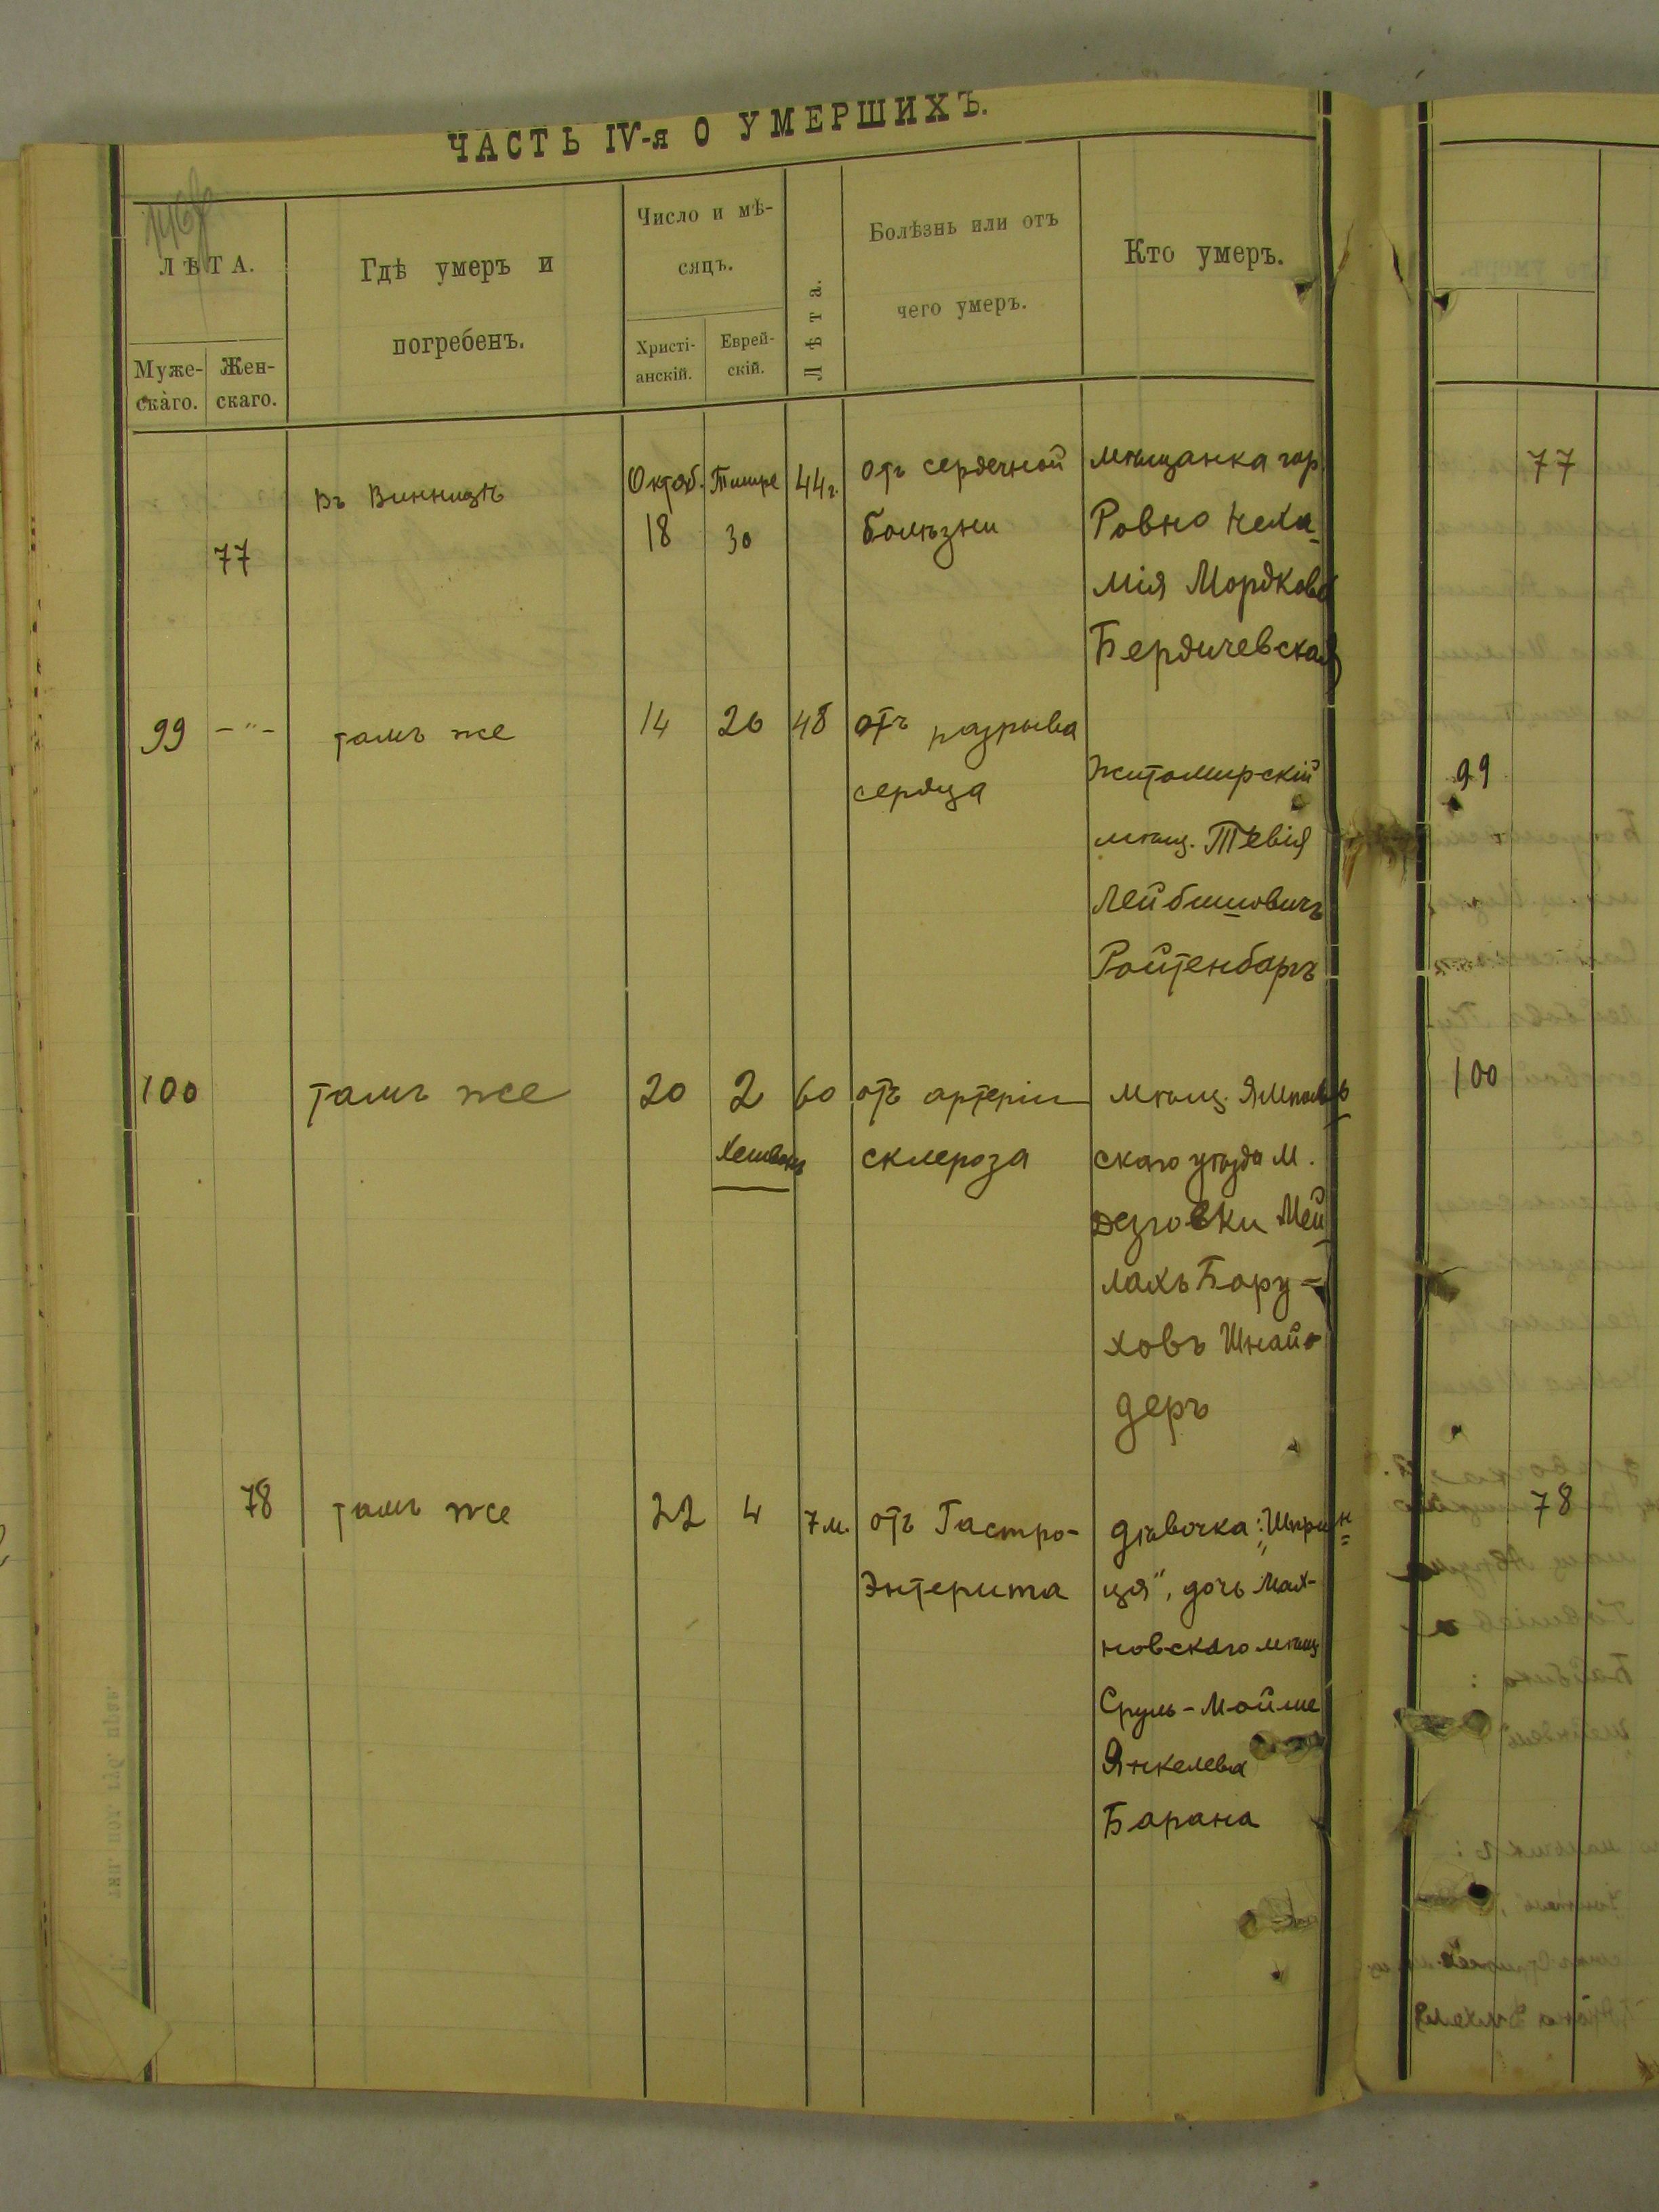 ЧАСТЬ IV-я О УМЕРШИХЪ.
ЛѢТА.
Муже-
скаго.
Жен-
скаго.
Гдѣ умеръ и
погребенъ.
Число и мѣ-
сяцъ.
Христі-
анскій.
Еврей-
скій.
Лѣта.
Болѣзнь или отъ
чего умеръ.
Кто умеръ.
77
въ Винницѣ
Октяб.
18
Тишре
30
44 г.
отъ сердечной
болѣзни
мѣщанка гор.
Ровно Неха-
мія Мордкова
Бердичевская
77
99
-"-
тамъ же
14
26
48
отъ разрыва
сердца
Житомирскій
мѣщ. Тевія
Лейбишовичъ
Ройтенбаргъ
99
100
тамъ же
20
2
Хешванъ
60
отъ артеріи
склероза
мѣщ. Ямполь-
скаго уѣзда м.
Дзговки Мей-
лахъ Бору-
ховъ Шнай-
деръ
100
78
тамъ же
22
4
7 м.
отъ Гастро-
Энтерита
дѣвочка: „Шприн-
ця", дочь Мах-
новскаго мѣщ
Сруль-Мойше
Янкелева
Барана
78